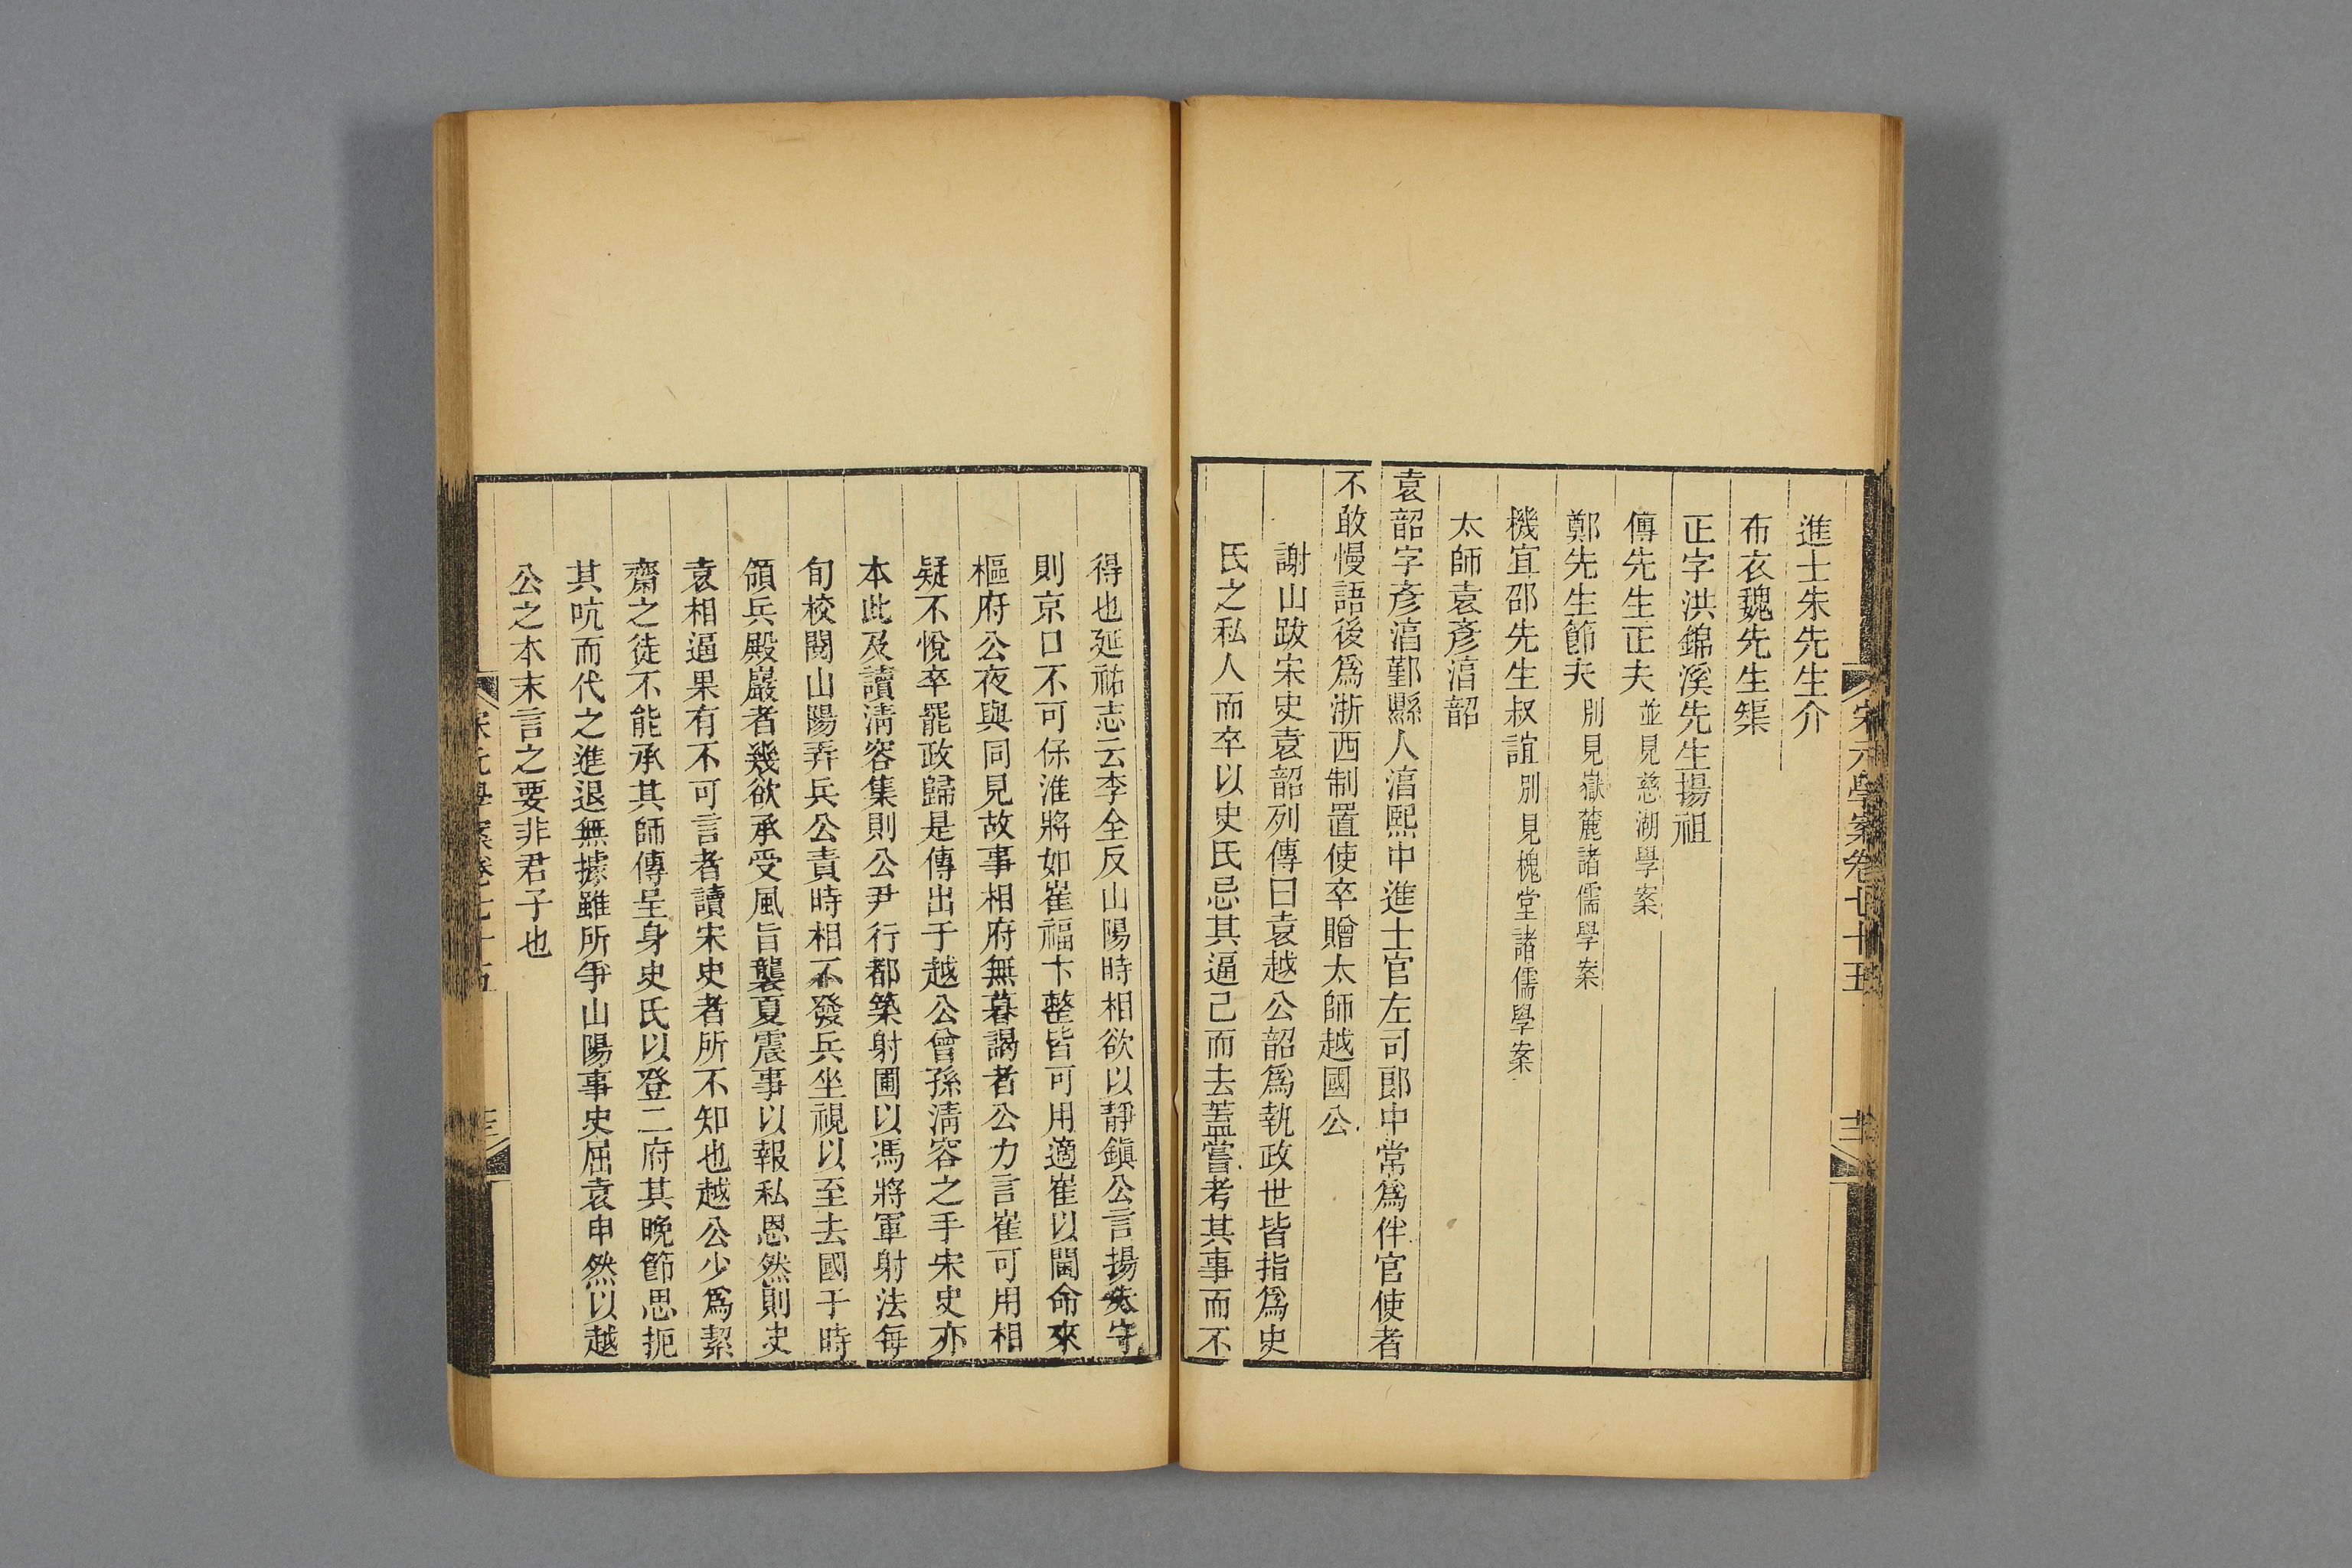 宋元學案卷七十五
進士朱先生介
布衣魏先生榘
正字洪錦溪先生揚祖
傅先生正夫並見慈湖學案
鄭先生節夫別見嶽麓諸儒學案
機宜邵先生叔誼別見槐堂諸儒學案
太師袁彥淳韶
袁韶字彥淳鄞縣人淳熙中進士官左司郎中常爲伴官使者
不敢慢語後爲浙西制置使卒贈太師越國公
謝山跋宋史袁韶列傳曰袁越公韶爲執政世皆指爲史
氏之私人而卒以史氏忌其逼己而去蓋嘗考其事而不
得也延祐志云李全反山陽時相欲以靜鎮公言揚失守
則京口不可保淮將如崔福卞整皆可用適崔以閫命來
樞府公夜與同見故事相府無暮謁者公力言崔可用相
疑不悅卒罷政歸是傳出于越公曾孫淸容之手宋史亦
本此及讀淸容集則公尹行都築射圃以馮將軍射法每
旬校閱山陽弄兵公責時相不發兵坐視以至去國于時
領兵殿巖者幾欲承受風旨襲夏震事以報私恩然則史
袁相逼果有不可言者讀宋史者所不知也越公少爲絜
齋之徒不能承其師傳呈身史氏以登二府其晚節思扼
其吭而代之進退無據雖所爭山陽事史屈袁申然以越
公之本末言之要非君子也
宋元學案卷七十五